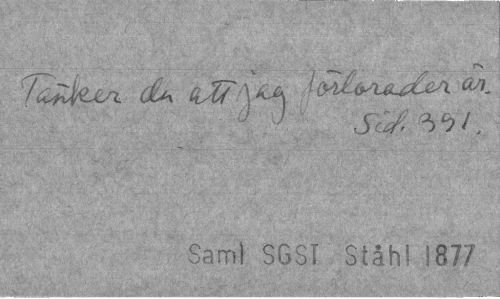 Tänker du att jag förlorader är.
Sid. 391.
Saml SGST Ståhl 1877